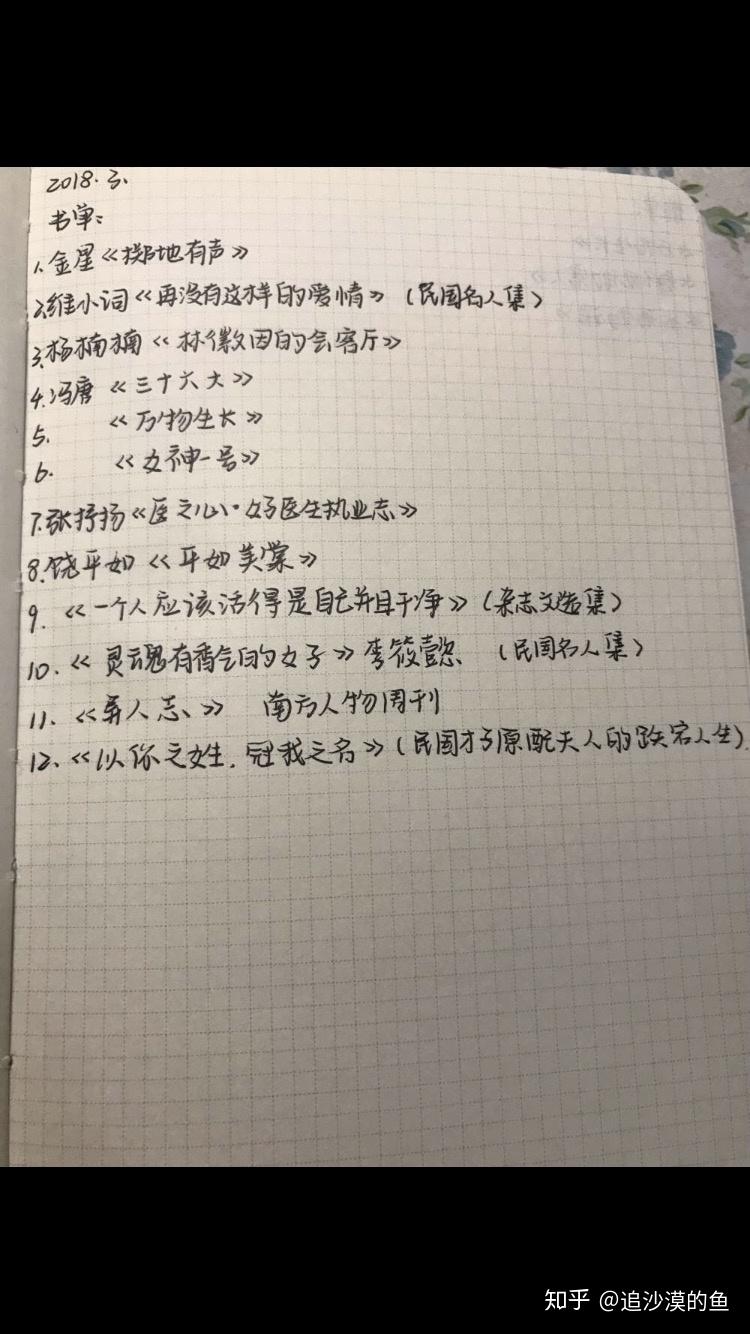 2018.3.
书单:
1.金星《掷地有声》
2.维小词《再没有这样的爱情》(民国名人集)
3.杨楠楠《林徽因的会客厅》
4.冯唐《三十六大》
5.《万物生长》
6.《女神一号》
7.张抒扬《医之心·好医生执业志》
8.饶平如《平如美棠》
9.《一个人应该活得是自己并且干净》(杂志文选集)
10.《灵魂有香气的女子》李筱懿 (民国名人集)
11.《异人志》 南方人物周刊
12.《以你之姓,冠我之名》(民国才子原配夫人的跌宕人生)
知乎 @追沙漠的鱼